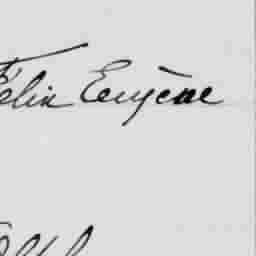 Félix Eugène